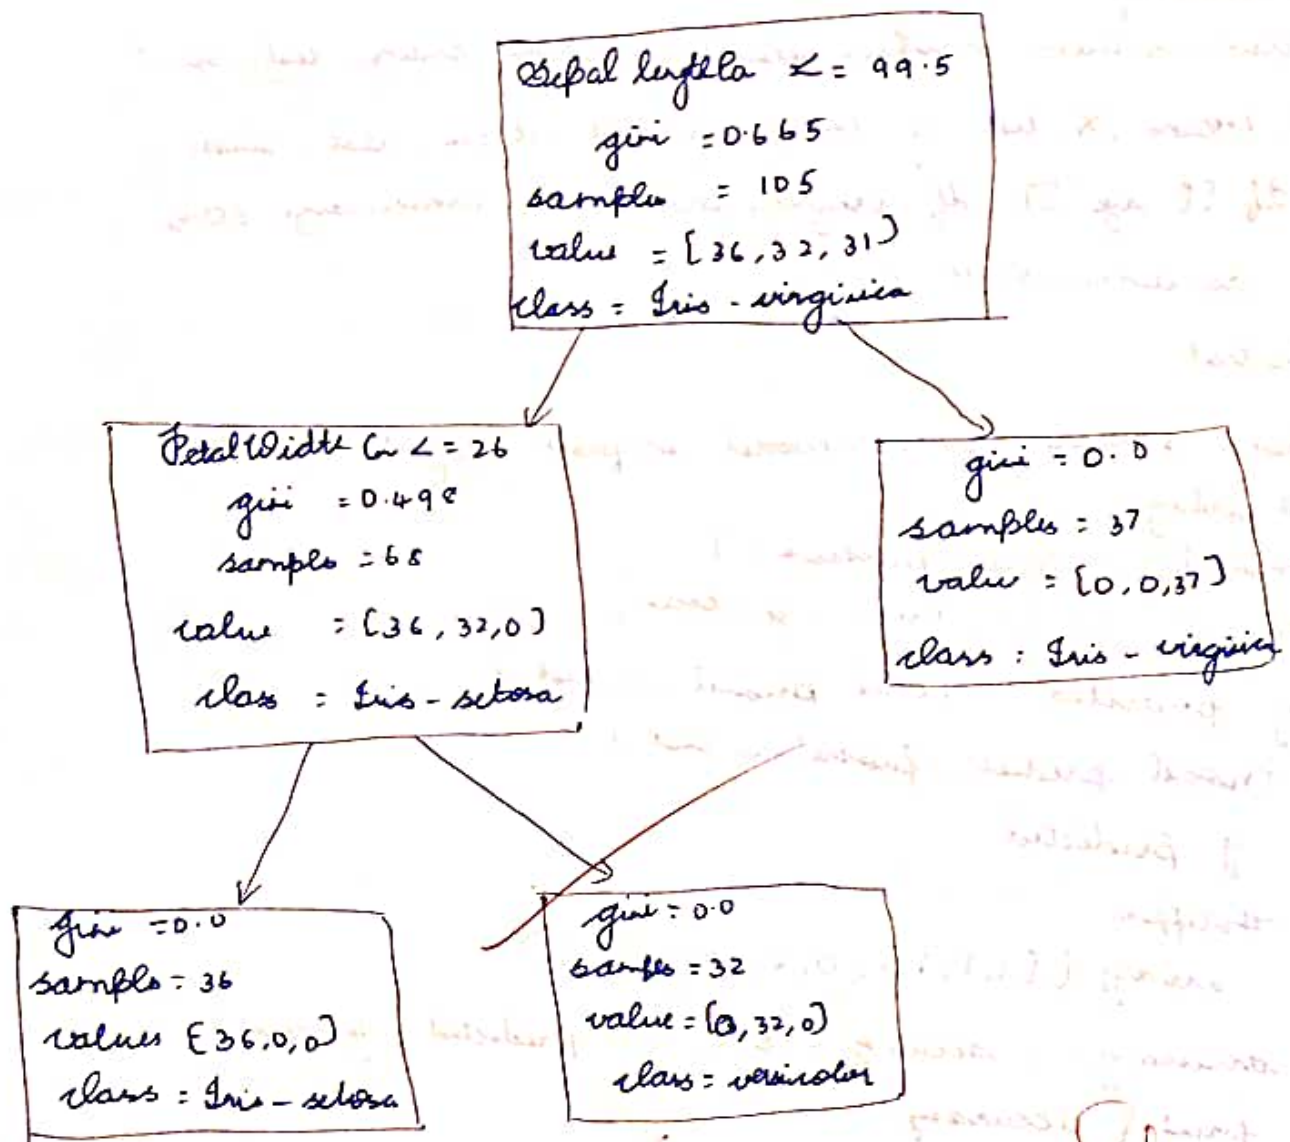 Sepal length <= 99.5
gini = 0.665
samples = 105
value = [36,32,31]
class = Iris - virginica
Petal Width <= 26
gini = 0.498
samples = 68
value = [36,32,0]
class = Iris - setosa
gini = 0.0
samples = 37
value = [0,0,37]
class : Iris - virginica
gini = 0.0
samples = 36
values [36,0,0]
class = Iris - setosa
gini = 0.0
samples = 32
value = [0,32,0)
class = versicolor